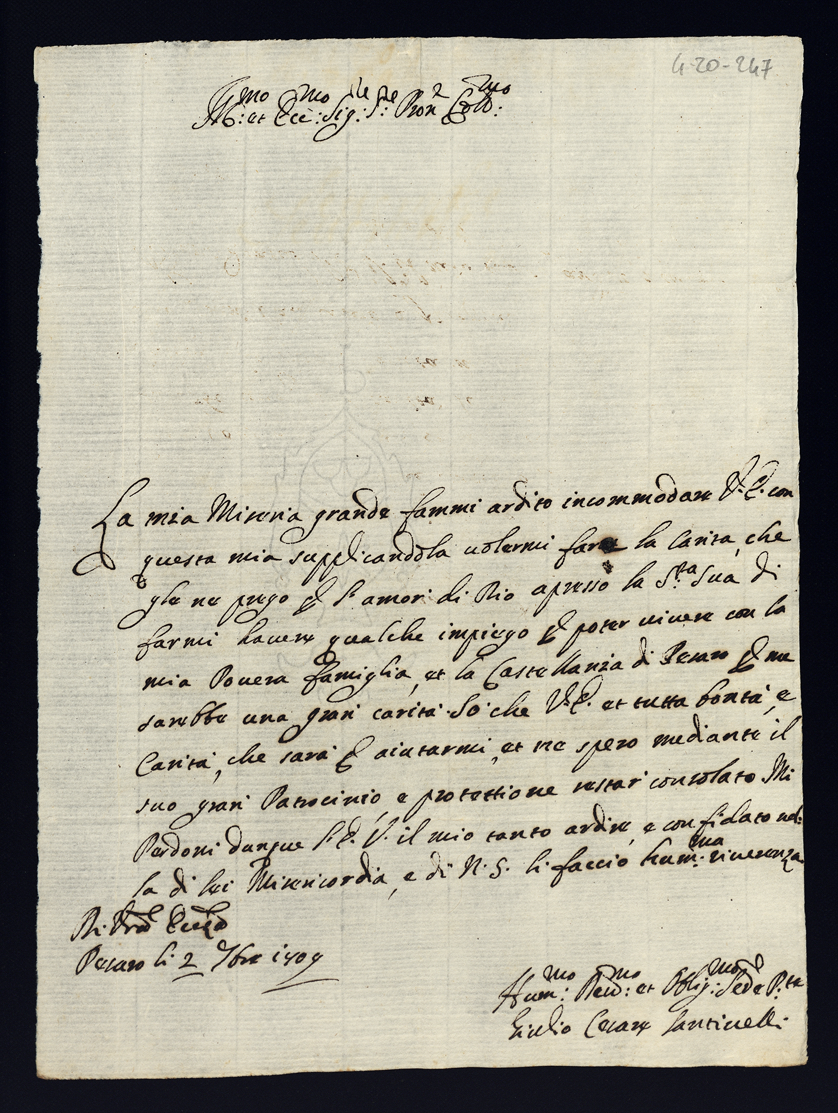 4-20-247
Ill:mo et Ecc:mo Sig:re S:re Pron Col:mo
La mia Miseria grande fammi ardito incommodare V.E. con
questa mia supplicandola volermi fare la Carità, che
gle ne prego p l'amori di Dio apresso la S:tà Sua di
farmi havere qualche impiego p poter vivere con la
mia Povera famiglia, et la Castellania di Pesaro p me
sarebbe una gran carità. So che V.E. et tutta bontà, e
Carità, che sarà p aiutarmi, et ne spero mediante il
suo gran Patrocinio, e protettione restar consolato Mi
Perdoni dunque l'E.V. il mio tanto ardire, e confidato nel-
la di lei Misericordia, e di N.S. li faccio hum:ma riverenza
Di Vra Ecc:za
Pesaro li 2 1709
Hum:mo Dev:mo et Oblig:mo
Giulio Cesare Santinelli